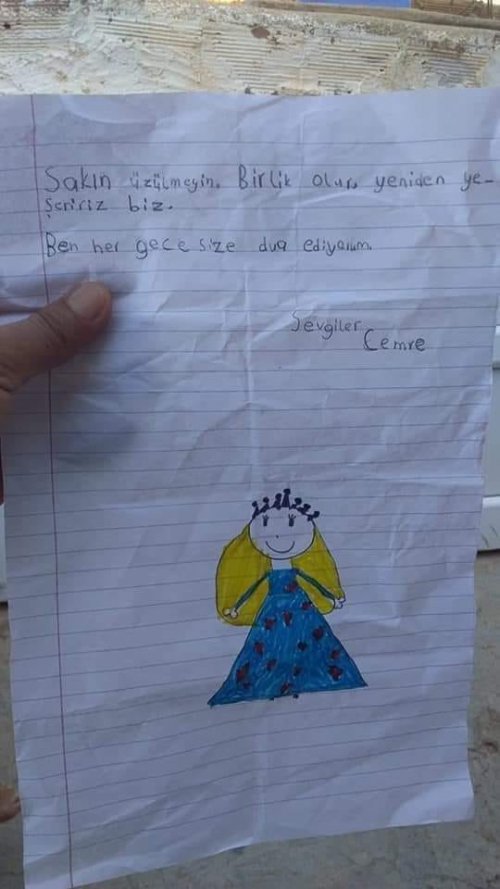 Sakın üzülmeyin. Birlik olur, yeniden ye-
şeririz biz.
Ben her gece size dua ediyorum.
Sevgiler
Cemre